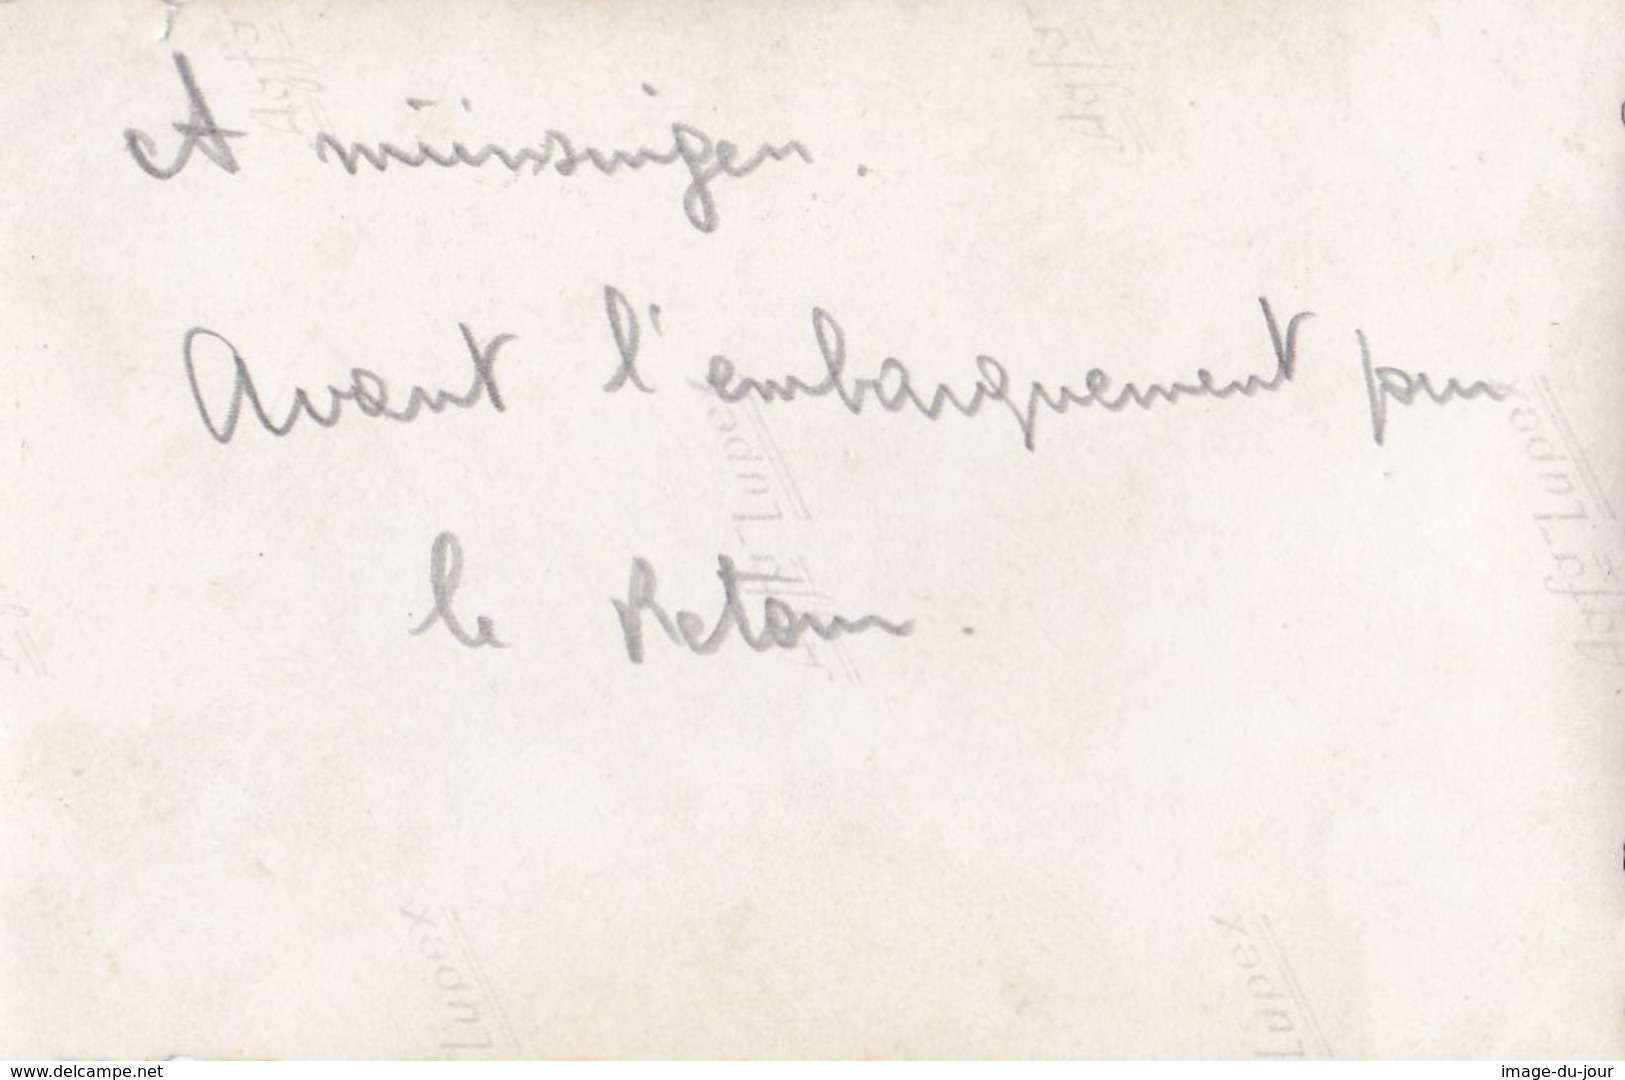 A münsingen.
Avant l'embarquement pour
le Retour.
Agfa Lupex
Agfa Lupex
Agfa
Agfa
Lupex
Lupex
www.delcampe.net
image-du-jour